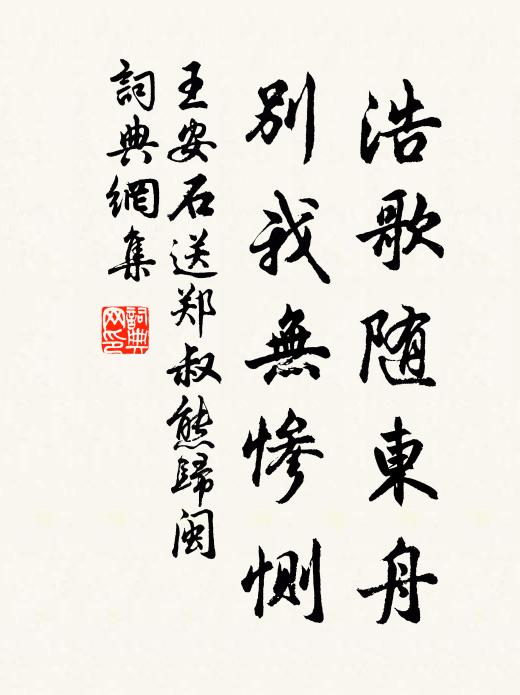 浩歌随東舟
別我無慘惻
王安石送郑叔熊歸闽
詞典網集
詞典网印